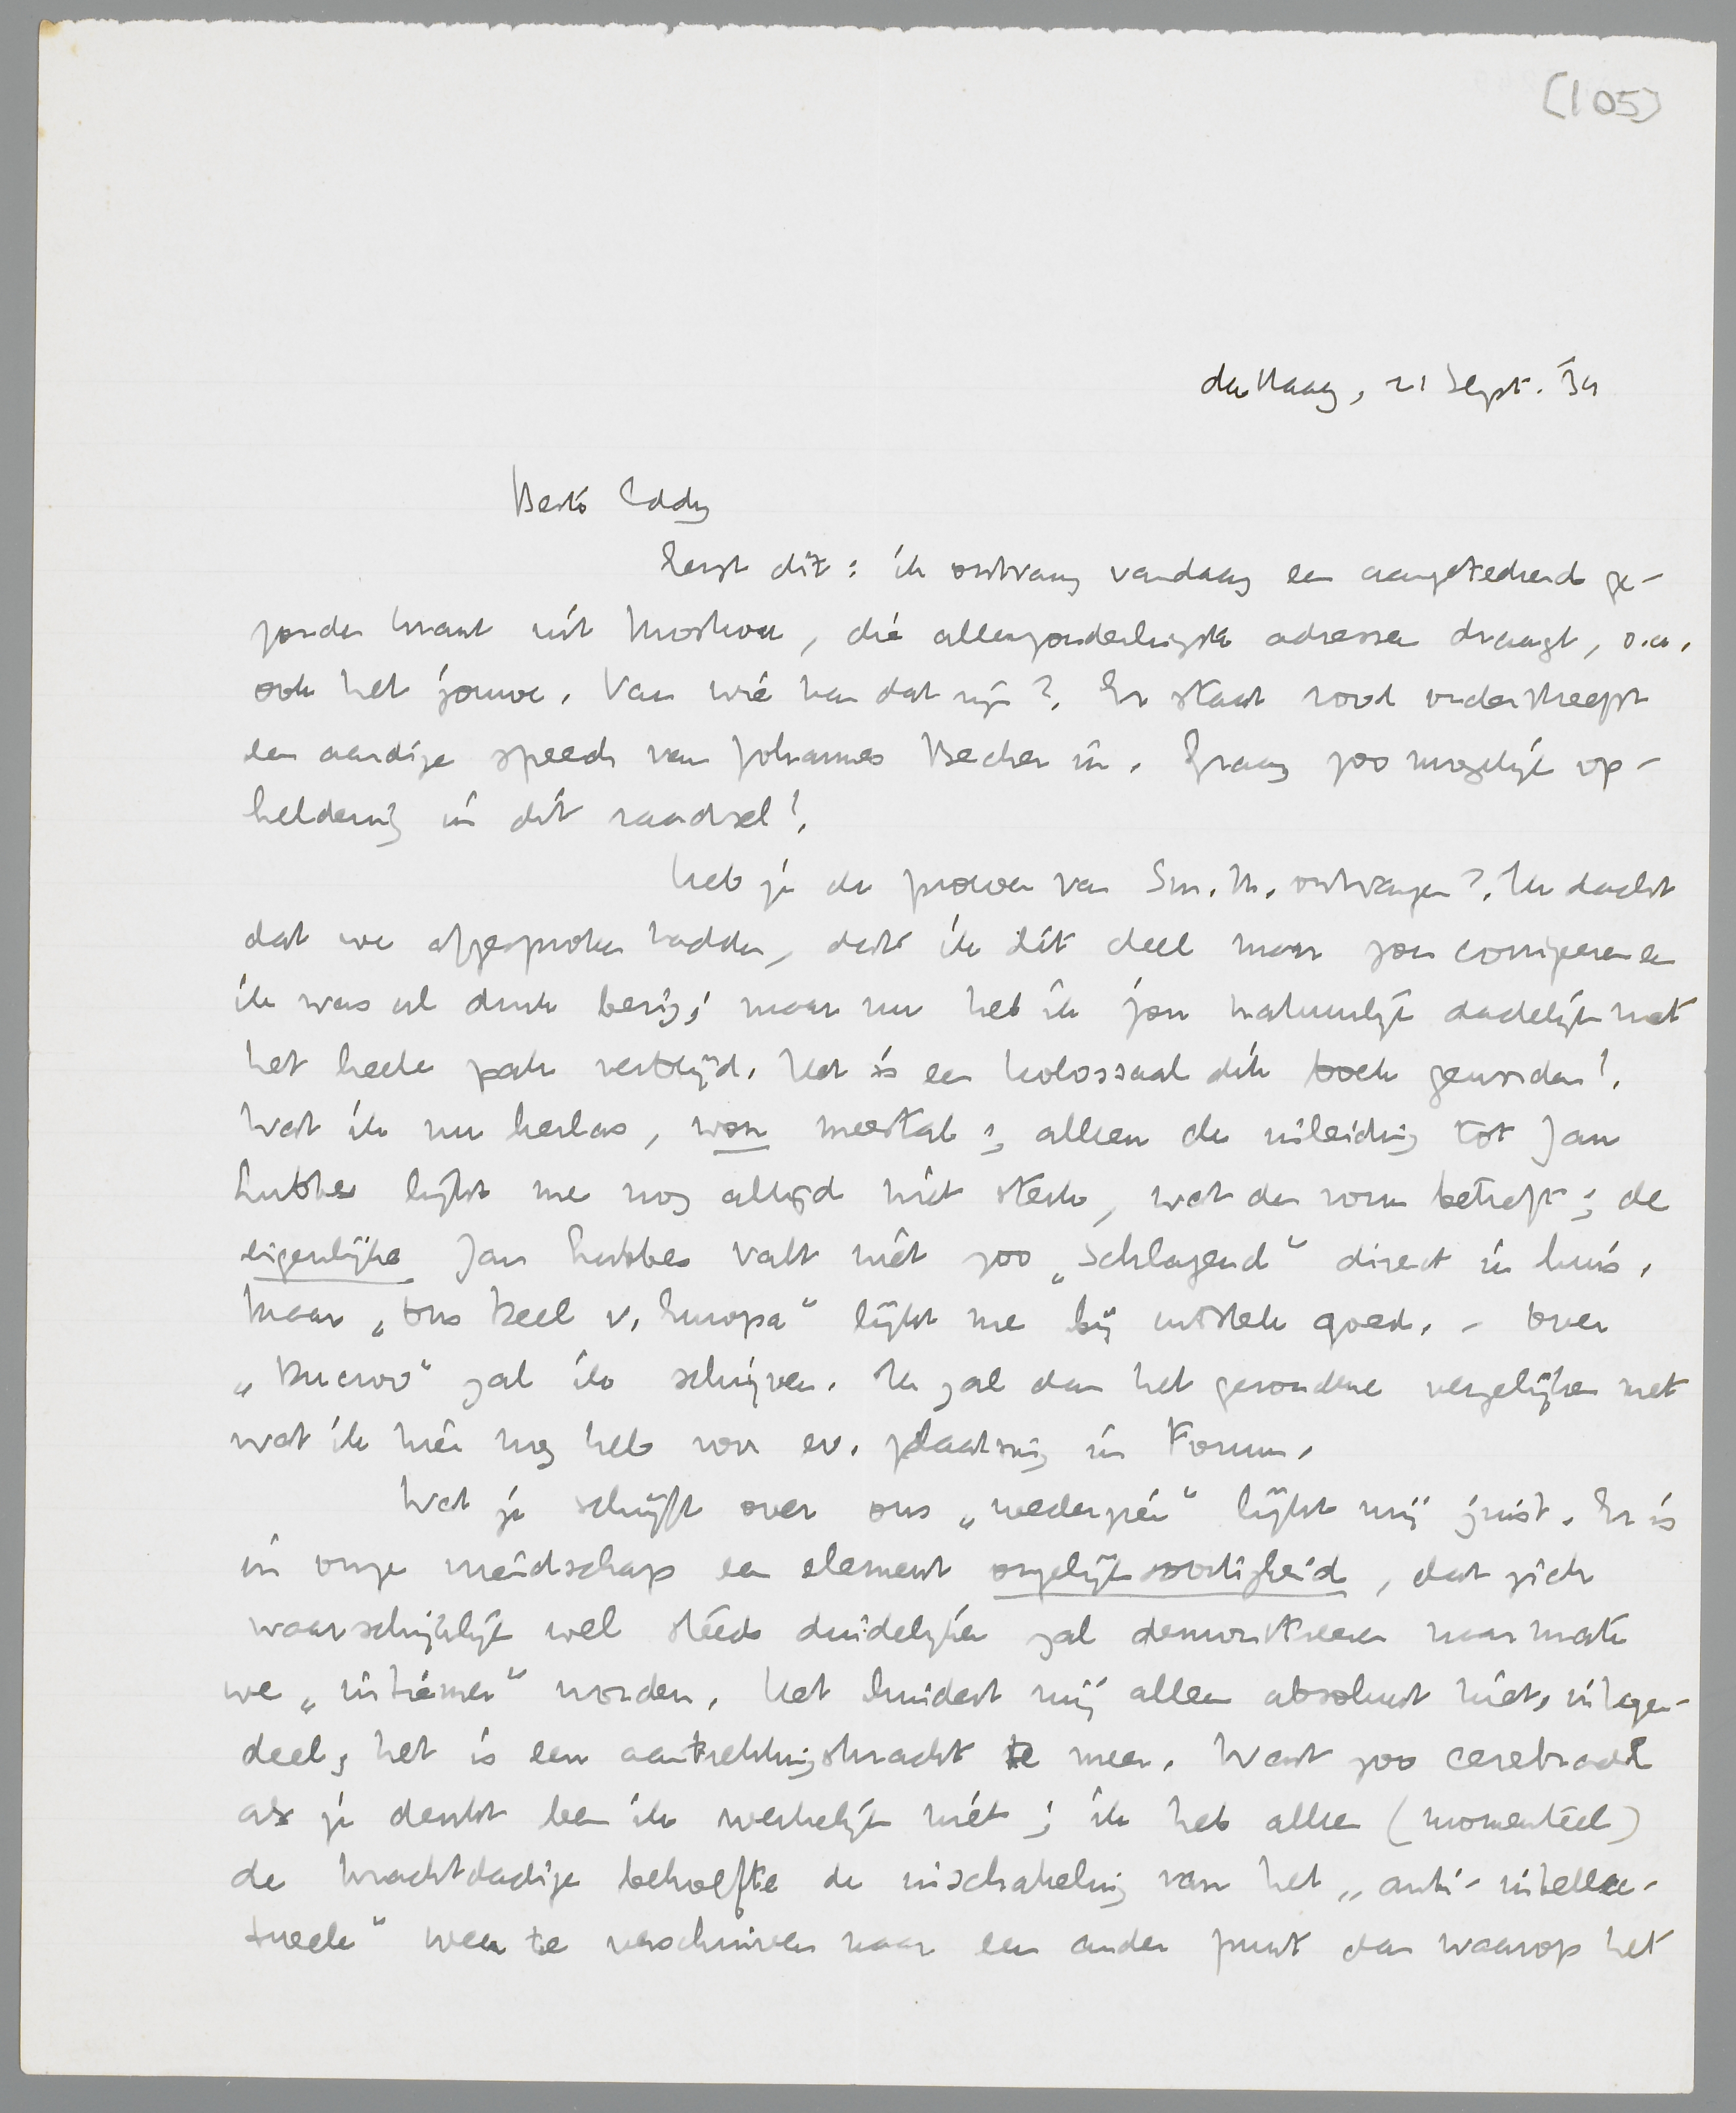 [105]
den Haag, 21 Sept. '34
Beste Eddy
Eerst dit: ik ontvang vandaag een aangeteekend ge-
zonden krant uit Moskou, die allerzonderlingste adressen draagt, o.a.
ook het jouwe. Van wie kan dat zijn? Er staat rood onderstreept
een aardige speech van Johannes Becher in. Graag zoo mogelijk op-
heldering in dit raadsel!
Heb je de proeven van Sm. M. ontvangen? Ik dacht
dat we afgesproken hadden, dat ik dit deel maar zou corrigeeren en
ik was al druk bezig; maar nu heb ik jou natuurlijk dadelijk met
het heele pak verblijd. Het is een kolossaal dik boek geworden!
Wat ik nu herlas, won meestal; alleen de inleiding tot Jan
Lubbes lijkt me nog altijd niet sterk, wat den vorm betreft; de
eigenlijke Jan Lubbes valt niet zoo „schlagend" direct in huis.
Maar „Ons Deel v. Europa" lijkt me bij uitstek goed. - Over
„Bucroo" zal ik schrijven. Ik zal dan het gevondene vergelijken met
wat ik hier nog heb voor ev. plaatsing in Forum.
Wat je schrijft over ons „wederzien" lijkt mij juist. Er is
in onze vriendschap een element ongelijksoortigheid, dat zich
waarschijnlijk wel steeds duidelijker zal demonstreeren naarmate
we „intiemer" worden. Het hindert mij alleen absoluut niet, integen-
deel, het is een aantrekkingskracht te meer. Want zoo cerebraal
als je denkt ben ik werkelijk niet; ik heb alleen (momenteel)
de krachtdadige behoefte de inschakeling van het „anti-intellec-
tueele" weer te verschuiven naar een ander punt dan waarop het